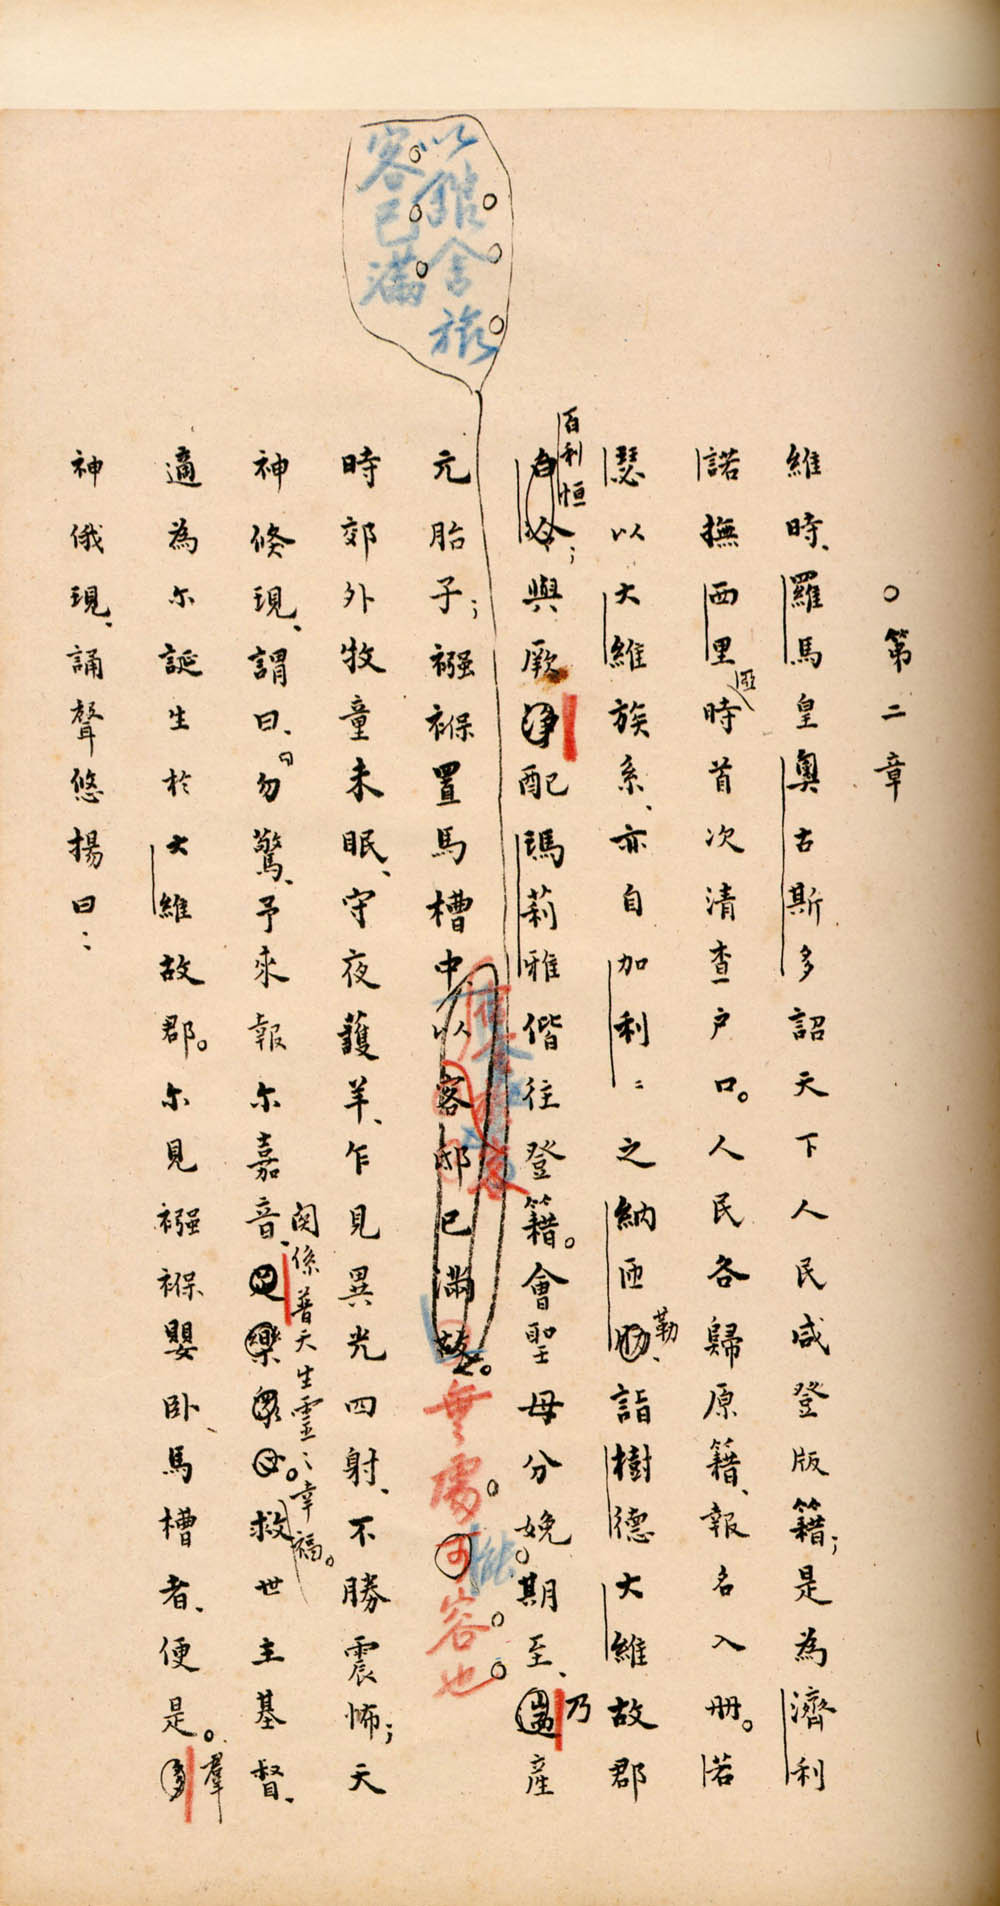 以館舍旅
客已滿
○第二章
維時、羅馬皇奧古斯多詔天下人民咸登版籍；是為濟利
諾撫西里亞時首次清查戶口。人民各歸原籍、報名入冊。若
瑟以大維族系、亦自加利之納匝勒、詣樹德大維故郡
百利恒
白冷；與厥淨配瑪莉雅偕往登籍。會聖母分娩期至、乃產
元胎子；襁褓置馬槽中以客邸已滿故。無處可容也
時郊外牧童未眠、守夜護羊、乍見異光四射、不勝震怖；天
神倏現、謂曰、勿驚、予來報尔嘉音、樂救世主基督、
関係普天生靈之幸福。
適為尔誕生於大維故郡。尔見襁褓嬰卧、馬槽者、便是。羣
神俄現、誦聲悠揚曰：